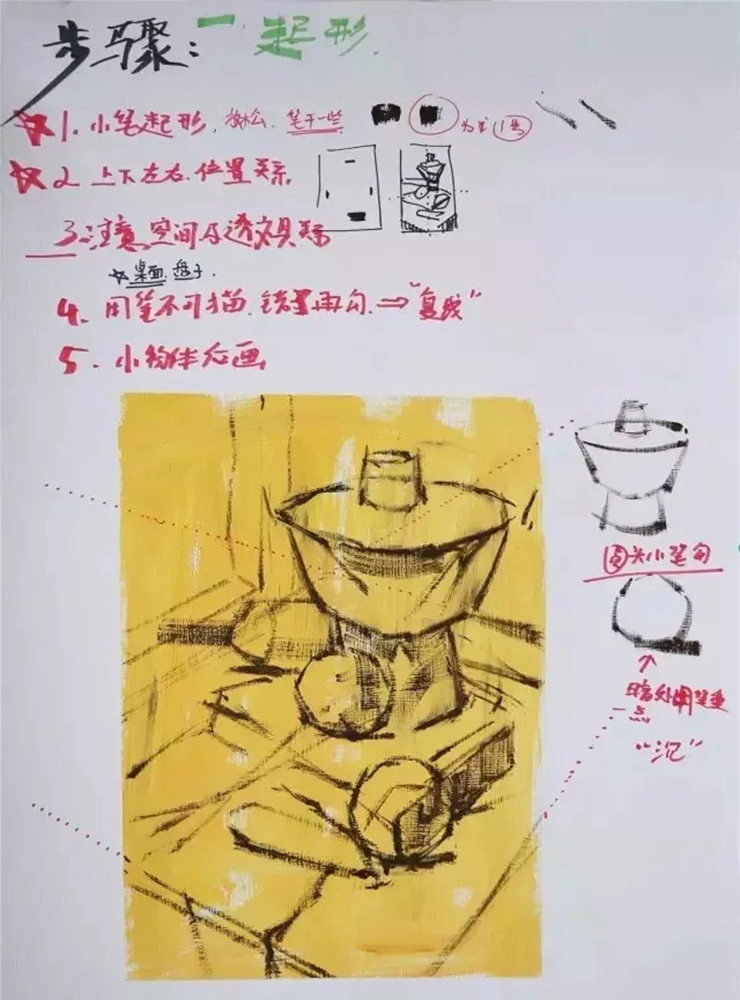 步骤:一起形.
★1.小笔起形,放松、笔干一些
为主 1号
★2 上下左右.位置关系
3.注意空间及透视关系
★桌面.盘子.
4.用笔不可描.错了再勾.⇒"复线"
5.小物体后画
圆头小笔勾
暗处用笔重
一点
"沉"